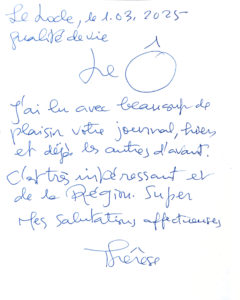 Le Locle, le 1.03.2025
qualité de vie
Le Ô
J'ai lu avec beaucoup de
plaisir votre journal, hiers
et déjà les autres d'avant.
C'est très intéressant et
de la Région. Super
Mes salutations affectueuses
Thérèse